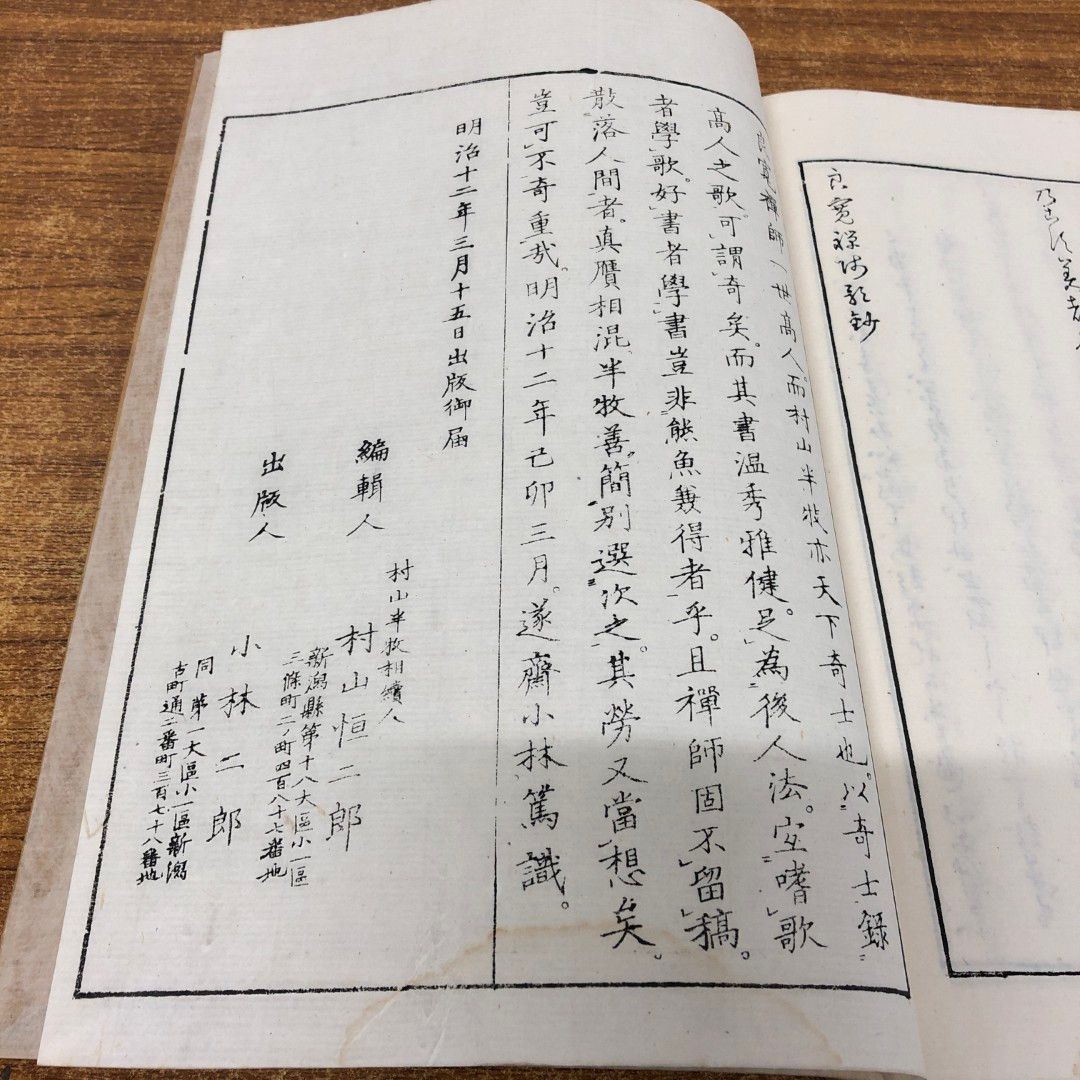 良寛禅師歌鈔
良寛禅師一世高人。而村山半牧亦天下奇士也。以奇士錄
高人之歌。可謂奇矣。而其書温秀雅健。足為後人法。宜嗜歌
者學歌。好書者學書豈非熊魚兼得者乎。且禪師固不留稿。
散落人間者。真贋相混半牧善簡別選次之。其勞又當想矣。
豈可不奇重哉。明治十二年己卯三月。遂齋小林篤識。
明治十二年三月十五日出版御届
村山半牧相續人
編輯人 村山恒二郎
新潟縣第十八大區小一區
三條町二ノ町四百八十七番地
出版人 小林二郎
同第一大區小一區新潟
古町通二番町三百七十八番地